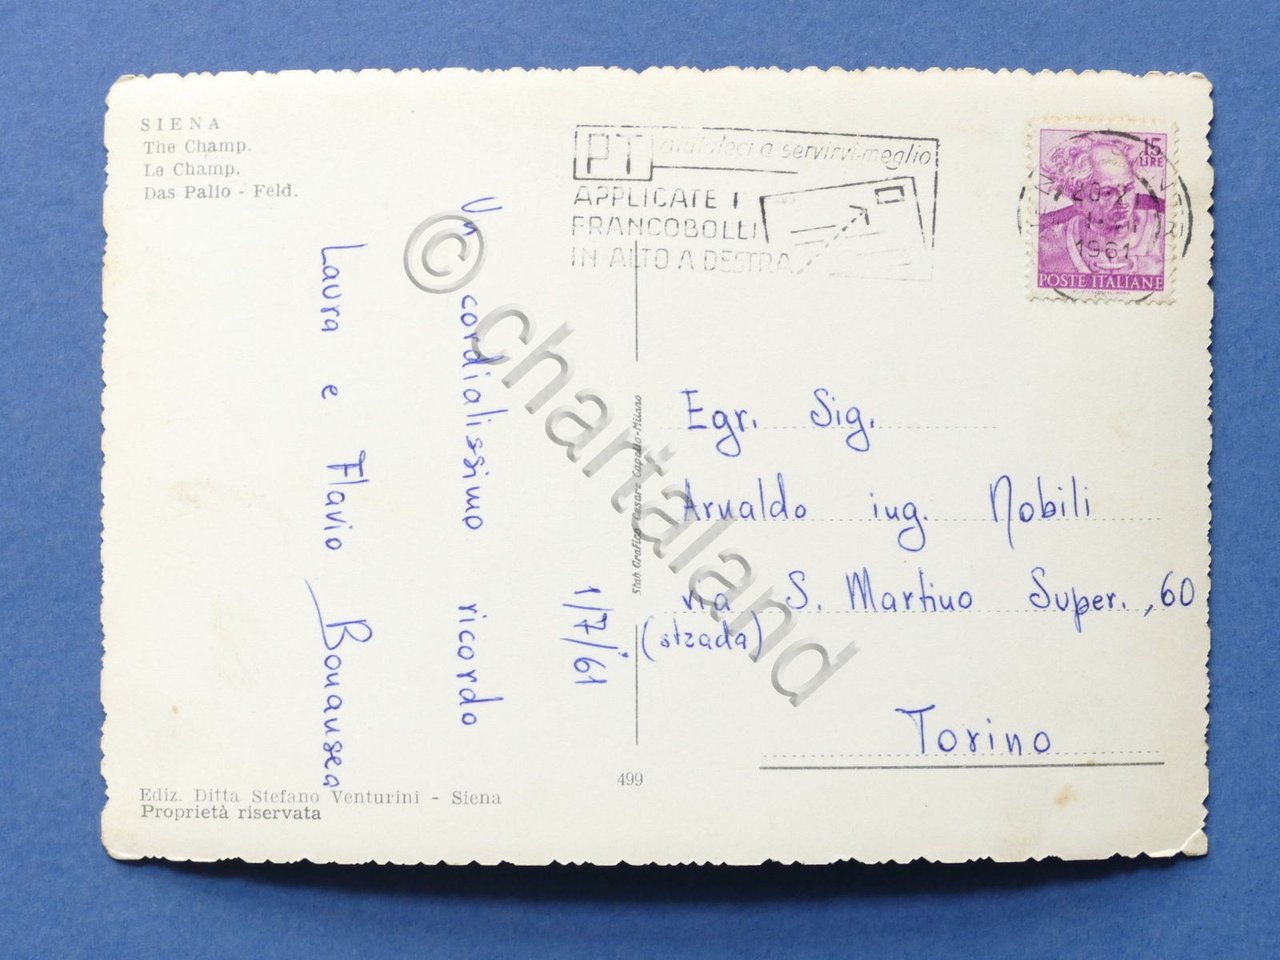 SIENA
The Champ.
Le Champ.
Das Palio - Feld.
PT aiutateci a servirvi meglio
APPLICATE I
FRANCOBOLLI
IN ALTO A DESTRA
15
LIRE
20-21
1961
POSTE ITALIANE
Un cordialissimo ricordo
Laura e Flavio Bonansea
1/7/61
Stab. Grafico Cesare Capello-Milano
Egr. Sig.
Arnaldo ing. Nobili
via S. Martino Super., 60
(strada)
Torino
499
Ediz. Ditta Stefano Venturini - Siena
Proprietà riservata
© chartaland